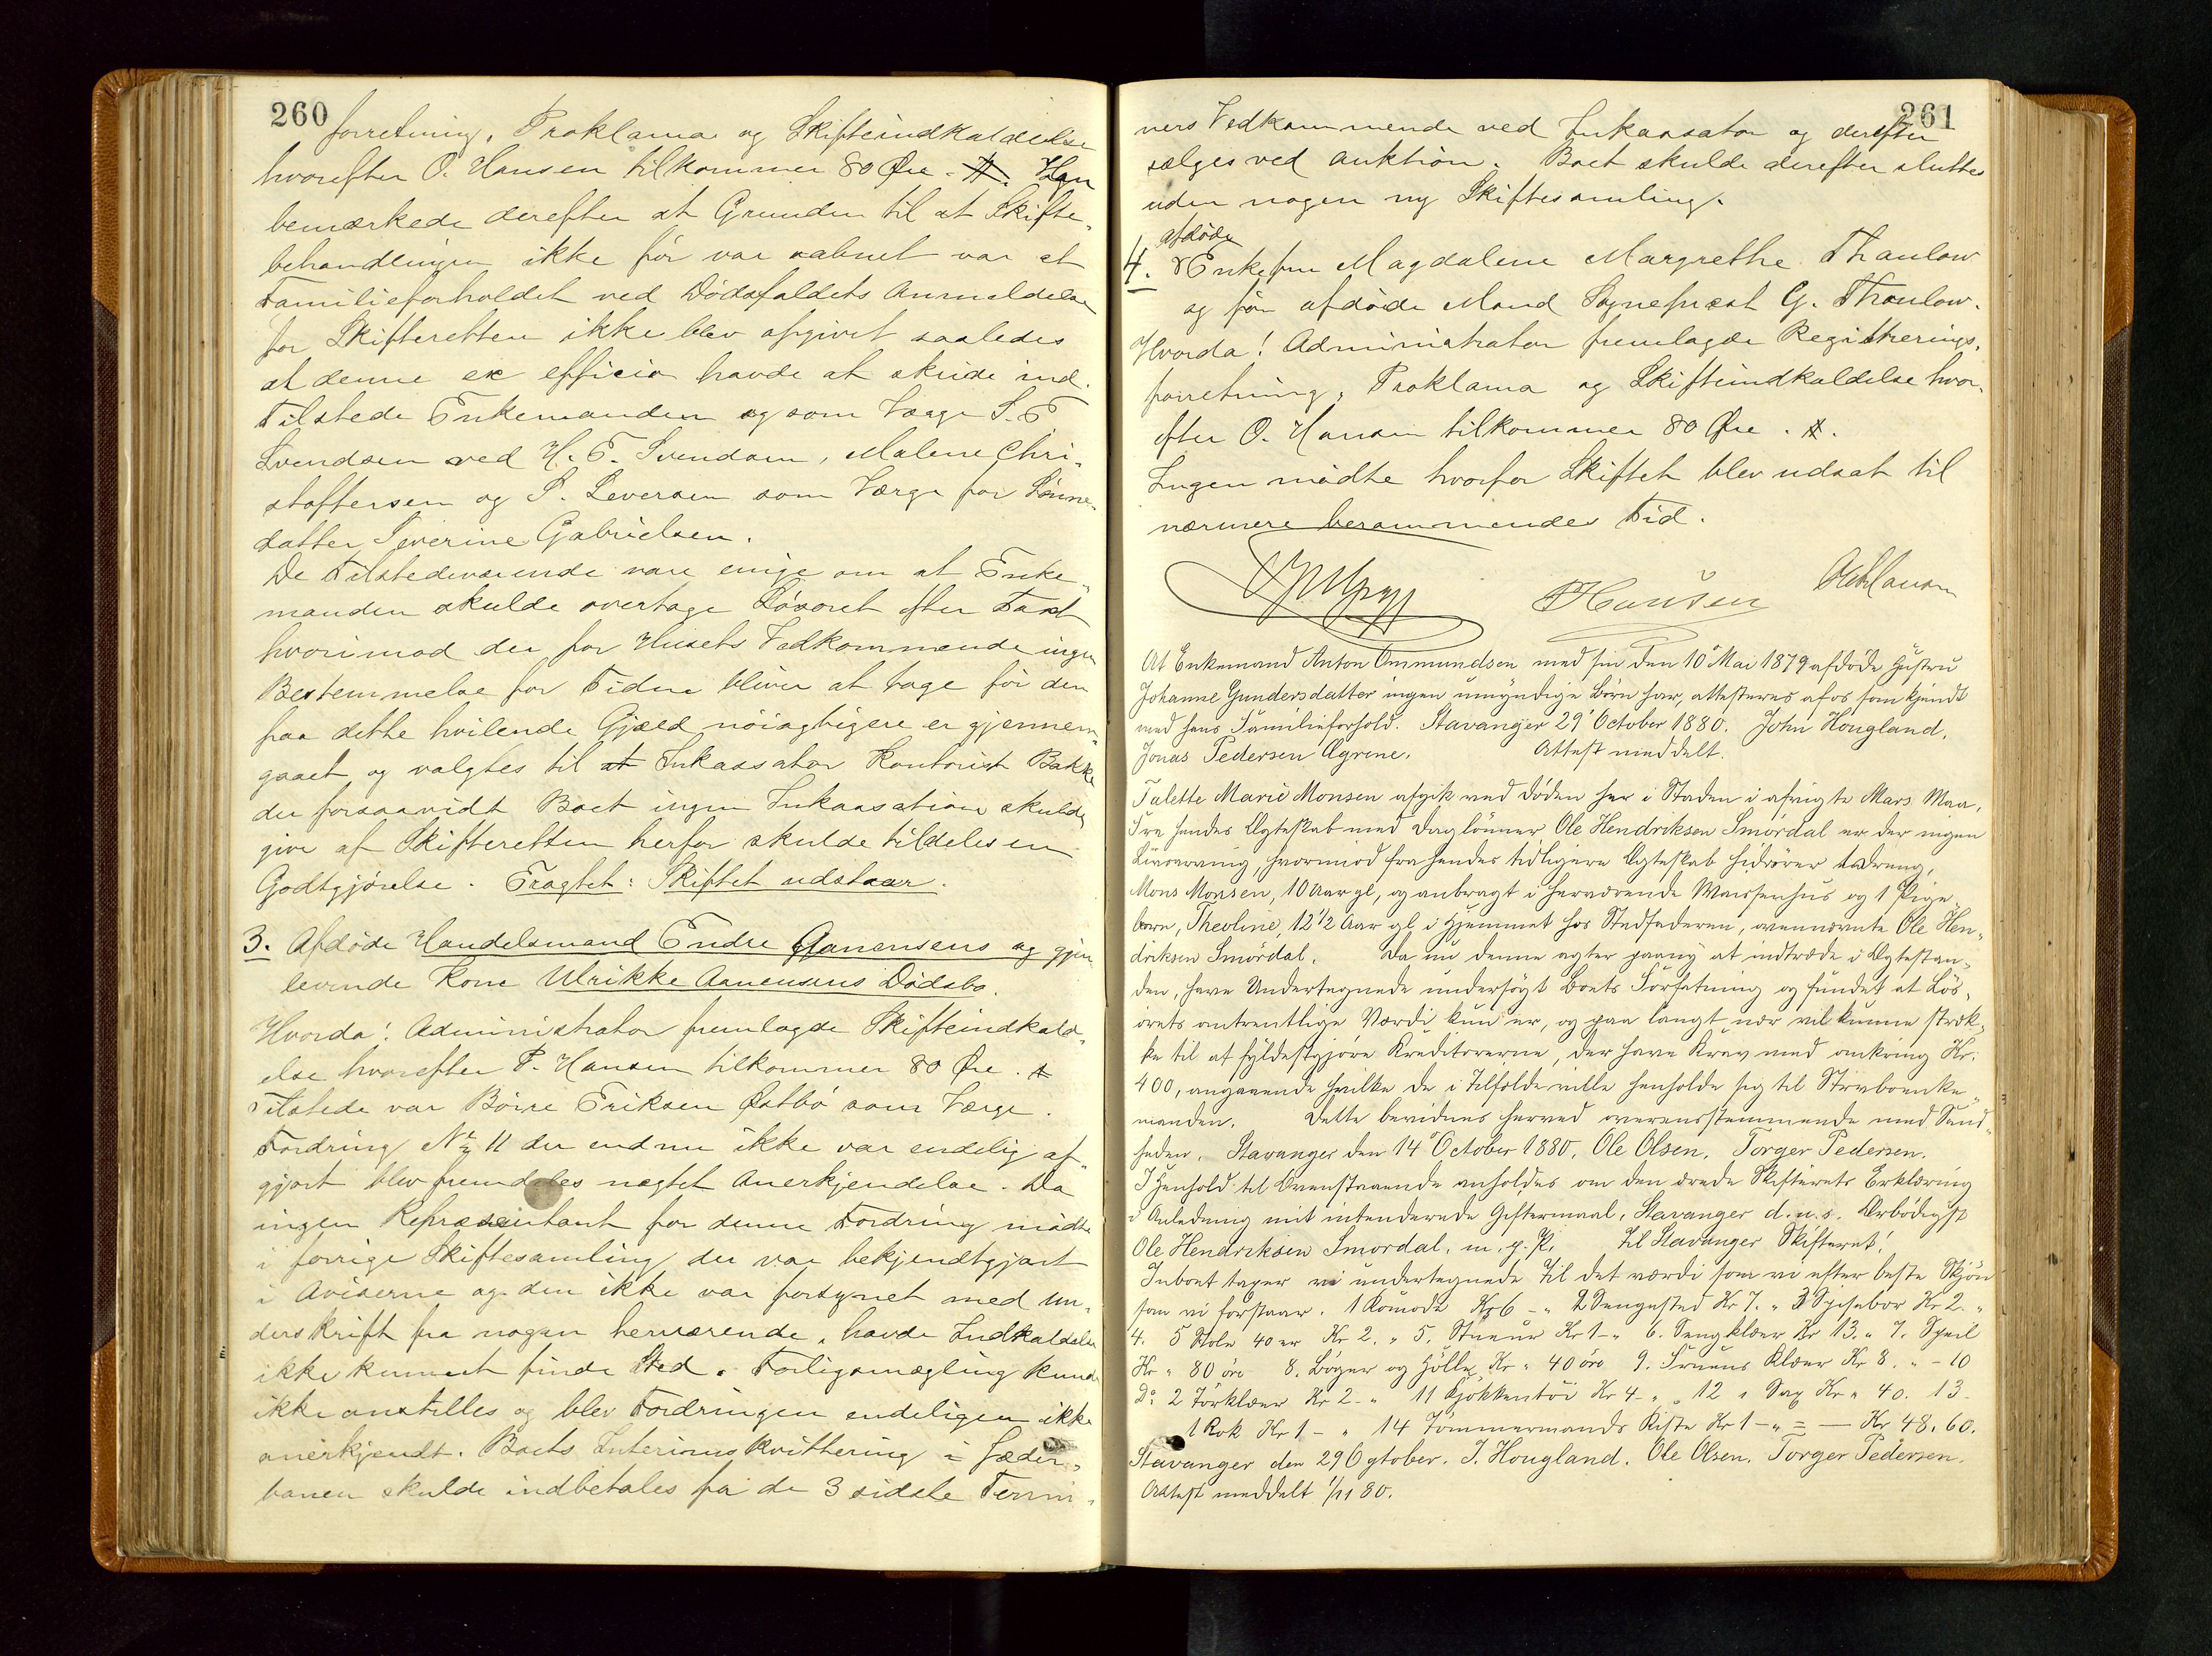 260
forretning, Proklama og Skifteindkaldelse
hvorefter O. Hansen tilkommer 80 Øre. Han
bemærkede derefter at Grunden til at Skifte-
behandlingen ikke før var aabnet var at
Familieforholdet ved Dødsfaldets Anmeldelse
for Skifteretten ikke blev opgivet saaledes
at denne ex officio havde at skride ind.
Tilstede Enkemanden og som Værge S. T.
Svendsen ved H. T. Svendsen, Malene Chri-
stoffersen og P. Seversen som Værge for Sønne-
datter Severine Gabrielsen.
De Tilstedeværende vare enige om at Enke-
manden skulde overtage Løsøret efter Taxt
hvorimod der for Husets Vedkommende ingen
Bestemmelse for Tiden bliver at tage før den
paa dette hvilende Gjæld nøiagtigere er gjennem-
gaaet og valgtes til Inkassator Kontorist Bakke
der forsaavidt Boet ingen Inkassation skulde
give af Skifteretten herfor skulde tildeles en
Godtgjørelse. Fragtet: Skiftet udstaar.
3. Afdøde Handelsmand Endre Aanensens og gjen-
levende Kone Ulrikke Aanensens Dødsbo.
Hvorda! Administrator fremlagde Skifteindkald-
else hvorefter P. Hansen tilkommer 80 Øre.
Tilstede var Børre Eriksen Østbø som Værge.
Fordring No 11 der endnu ikke var endelig af-
gjort blev fremdeles nægtet Anerkjendelse. Da
ingen Repræsentant for denne Fordring mødte
i forrige Skiftesamling der var bekjendtgjort
i Aviserne og den ikke var forsynet med Un-
derskrift fra nogen herværende, havde Indkaldelse
ikke kunnet finde Sted. Forligsmægling kunde
ikke anstilles og blev Fordringen endeligen ikke
anerkjendt. Boets Interimskvittering i Jæder-
banen skulde indbetales for de 3 sidste Termi-
261
ners Vedkommende ved Inkassator og derefter
sælges ved Auktion. Boet skulde derefter sluttes
uden nogen ny Skiftesamling.
afdøde
4. Enkefru Magdalene Margrethe Thaulow
og før afdøde Mand Sognepræst G. Thaulow.
Hvorda! Administrator fremlagde Registrerings-
forretning, Proklama og Skifteindkaldelse hvor-
efter O. Hansen tilkommer 80 Øre.
Ingen mødte hvorfor Skiftet blev udsat til
nærmere berammendes Tid.
PHansen
At Enkemand Anton Ommundsen med sin den 10de Mai 1879 afdøde Hustru
Johanne Gundersdatter ingen umyndige Børn har, attesteres af os som kjendt
med hans Familieforhold. Stavanger 29' October 1880. John Hougland,
Jonas Pedersen Øgrene. Attest meddelt.
Talette Marie Monsen afgik ved Døden her i Staden i afvigte Mars Maa-
Fra hendes Ægteskab med Daglønner Ole Hendriksen Smørdal er der ingen
Livsarving, hvorimod fra hendes tidligere Ægteskab hidrører 1 Dreng,
Mons Monsen, 10 Aar gl, og anbragt i herværende Waisenhus og 1 Pige-
barn, Theoline, 12 1/2 Aar gl i Hjemmet hos Stedfaderen, ovennævnte Ole Hen-
driksen Smørdal. Da nu denne agter paany at indtræde i Ægtestan-
den, have Undertegnede undersøgt Boets Forfatning og fundet at Løs-
ørets omtrentlige Værdi kun er, og paa langt nær vil kunne stræk-
ke til at fyldestgjøre Kreditorerne, der have Krav med omkring Kr.
400, angaaende hvilke de i Tilfælde ville henholde sig til Stervboenke-
manden. Dette bevidnes herved overensstemmende med Sand-
heden. Stavanger den 14de October 1880. Ole Olsen. Torger Pedersen.
I Henhold til Ovenstaaende anholdes om den ærede Skifterets Erklæring
i Anledning mit intenderede Giftermaal, Stavanger d. u. s. Ærbødigst
Ole Hendriksen Smørdal. m. p. P. Til Stavanger Skifteret!
Inboet taxer vi undertegnede til det værdi som vi efter beste Skjøn
som vi forstaar. 1 Komode Kr 6 - " 2 Sengested Kr 7. " 3 Spisebor Kr 2. "
4. 5 Stole 40 er Kr 2. " 5. Stueur Kr 1 - " 6. Sengklær Kr 13. " 7. Speil
Kr " 80 øre 8. Bøger og Hølle Kr " 40 øre 9. Fruens Klæer Kr 8. " - 10
Do 2 Tørklær Kr 2 - " 11 Kjøkkentøi Kr 4 - " 12 1 Sax Kr " 40. 13
1 Rok Kr 1 - " 14 Tømmermands Kiste Kr 1 - " = - Kr 48.60.
Stavanger den 29 Ogtober. J. Hougland. Ole Olsen. Torger Pedersen.
Attest meddelt 1/11 80.